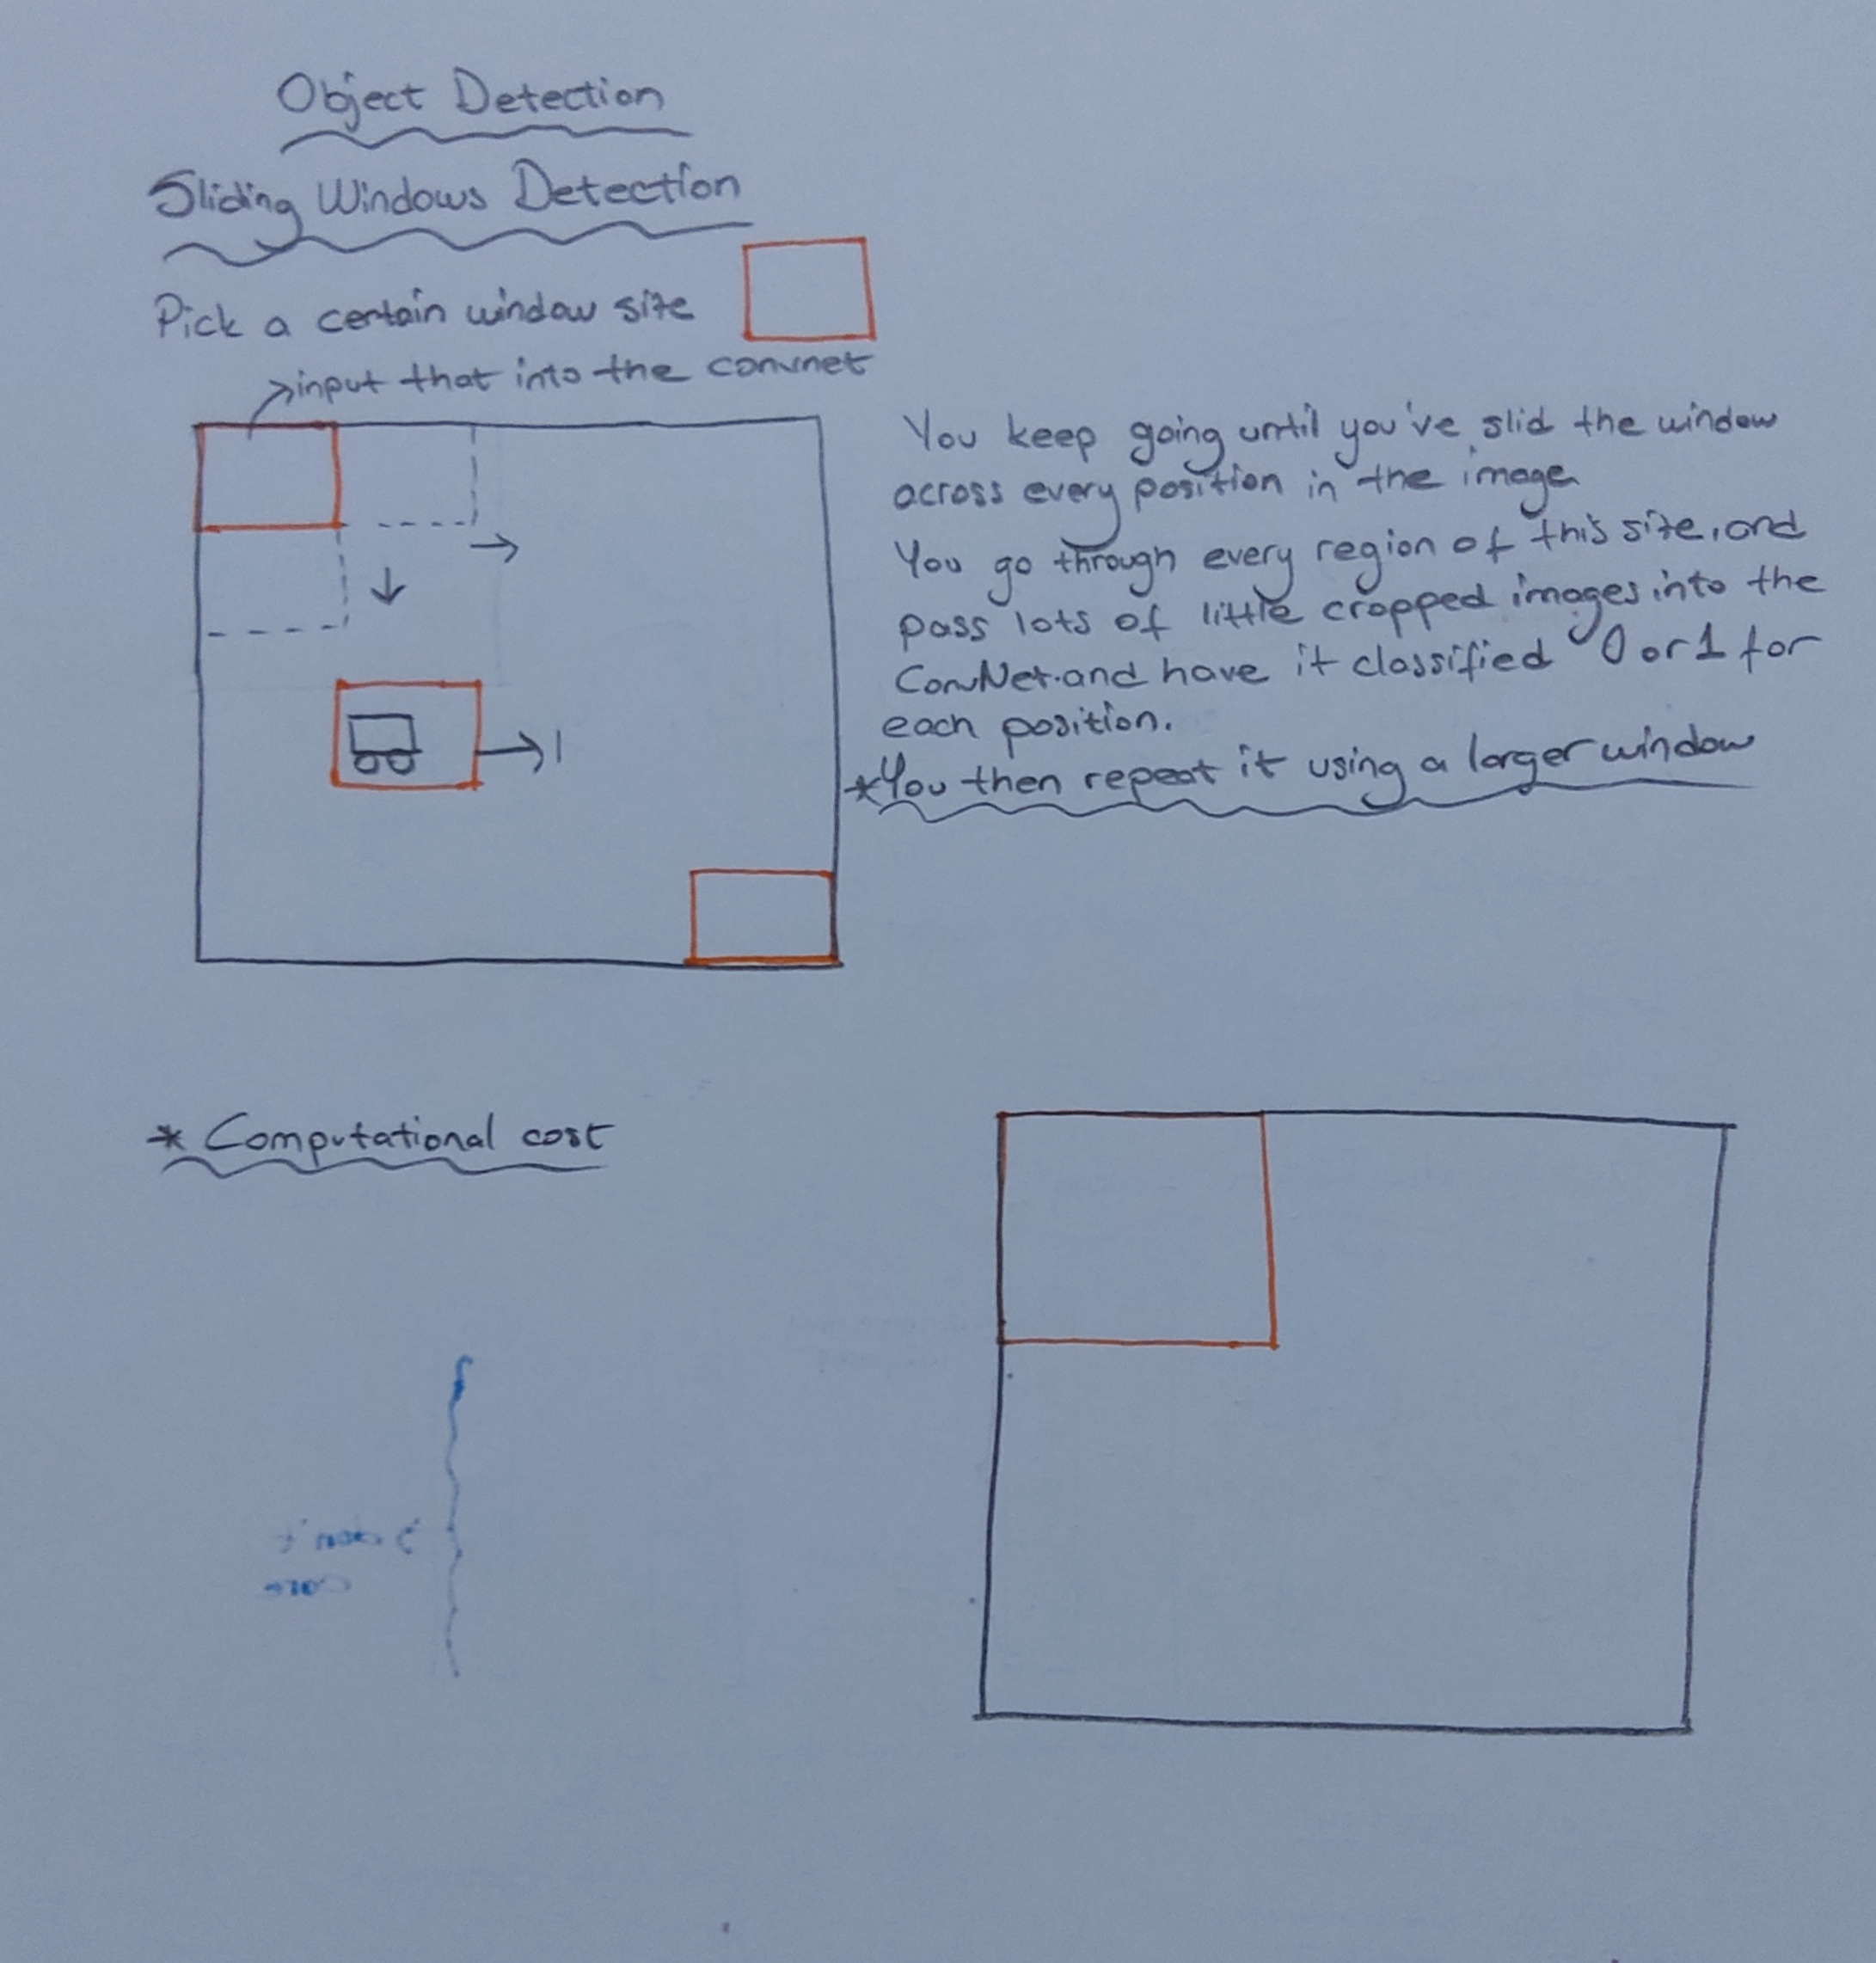 Object Detection
Sliding Windows Detection
Pick a certain window size
input that into the convnet
You keep going until you've slid the window
across every position in the image
You go through every region of this size, and
pass lots of little cropped images into the
ConvNet and have it classified 0 or 1 for
each position.
*You then repeat it using a larger window
1
* Computational cost